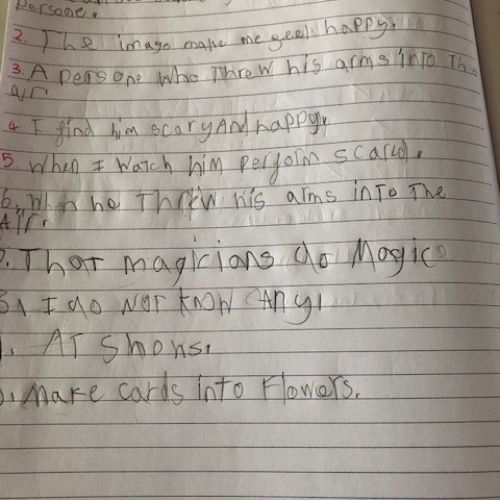 Persone.
2. The image make me geel happy.
3. A peasone who threw his arms into The
air
4 I find him scary And happy,
5. When I watch him pergorm scared.
6. When he Threw his arms into The
Air.
7. That magicians do Magic
8. I do Not know Any,
. AT Shows.
. Make cards into Flowers.